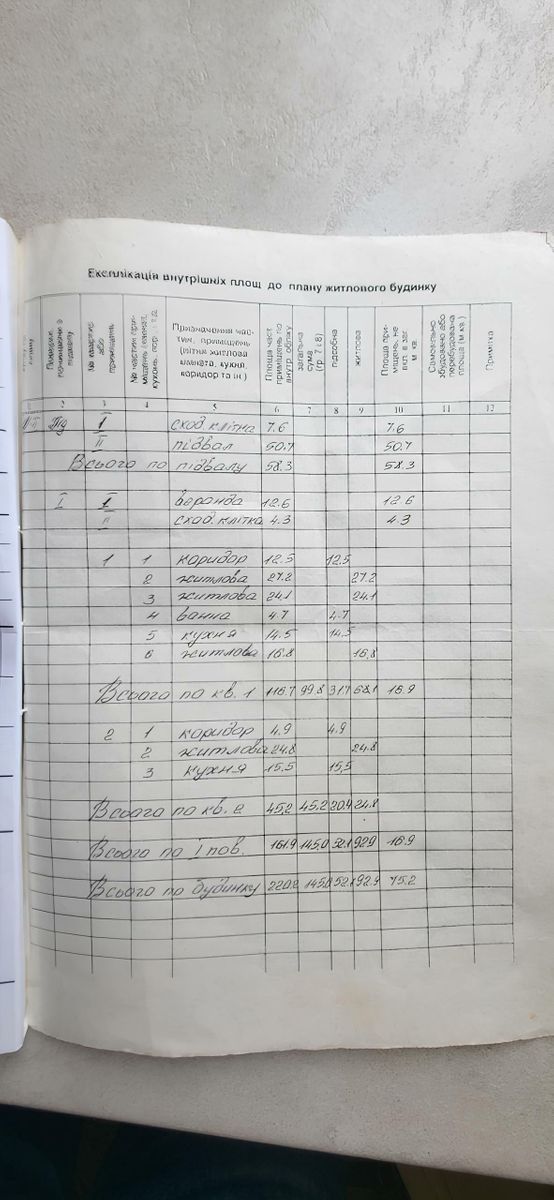 Експлікація внутрішніх площ до плану житлового будинку
Поверхи, починаючи з підвалу
№ квартир або приміщень
Призначення частин, приміщень (вітня житлова кімната, кухня, коридор та ін.)
Площа част. приміщень по внутр. обміру
загальна сума (гр. 7 і 8)
підсобна
житлова
Площа приміщень, не вкл. в заг. м. кв.
Самовільно збудовано або перебудована площа (м.кв.)
Примітка
1 2 3 4 5 6 7 8 9 10 11 12
Під I сход. клітка 7.6 7.6
II підвал 50.7 50.7
Всього по підвалу 58.3 58.3
I I веранда 12.6 12.6
II сход. клітка 4.3 4.3
1 1 коридор 12.5 12.5
2 житлова 27.2 27.2
3 житлова 24.1 24.1
4 ванна 4.7 4.7
5 кухня 14.5 14.5
6 житлова 16.8 16.8
Всього по кв. 1 116.7 99.8 31.7 68.1 16.9
2 1 коридор 4.9 4.9
2 житлова 24.8 24.8
3 кухня 15.5 15.5
Всього по кв. 2 45.2 45.2 20.4 24.8
Всього по I пов. 161.9 145.0 52.1 92.9 16.9
Всього по будинку 220.2 145.0 52.1 92.9 75.2